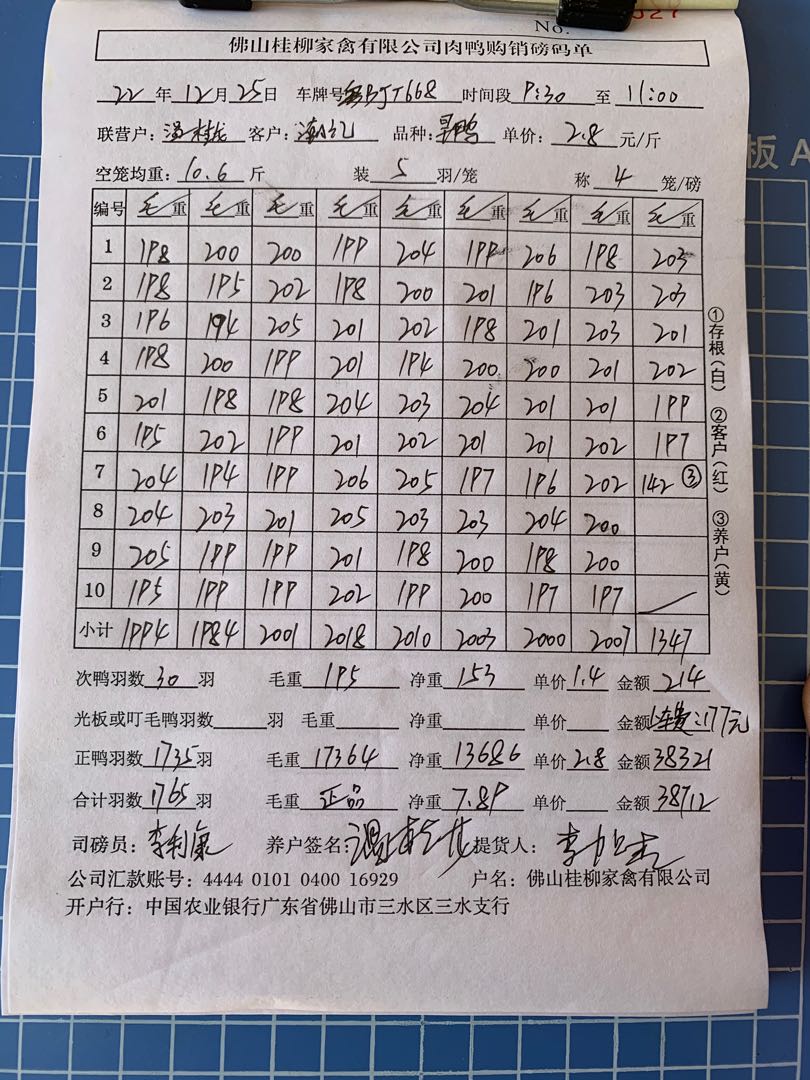 No.
佛山桂柳家禽有限公司肉鸭购销磅码单
22 年 12 月 25 日 车牌号 BJT668 时间段 9:30 至 11:00
联营户: 客户: 品种: 鸭 单价: 2.8 元/斤
空笼均重: 10.6 斤 装 5 羽/笼 称 4 笼/磅
编号 毛/重 毛/重 毛/重 毛/重 毛/重 毛/重 毛/重 毛/重 毛/重
1 198 200 200 199 204 199 206 198 203
2 198 195 202 198 200 201 196 203 203
3 196 194 205 201 202 198 201 203 201
4 198 200 199 201 194 200 200 201 202
5 201 198 198 204 203 204 201 201 199
6 195 202 199 201 202 201 201 202 197
7 204 194 199 206 205 197 196 202 142 ③
8 204 203 201 205 203 203 204 200
9 205 199 199 201 198 200 198 200
10 195 199 199 202 199 200 197 197
小计 1994 1984 2001 2018 2010 2003 2000 2007 1347
次鸭羽数 30 羽 毛重 195 净重 153 单价 1.4 金额 214
光板或叮毛鸭羽数 羽 毛重 净重 单价 金额 :177元
正鸭羽数 1735 羽 毛重 17364 净重 13686 单价 2.8 金额 38321
合计羽数 1765 羽 毛重 正品 净重 7.89 单价 金额 38712
司磅员: 李利康 养户签名: 提货人: 李
公司汇款账号: 4444 0101 0400 16929 户名: 佛山桂柳家禽有限公司
开户行: 中国农业银行广东省佛山市三水区三水支行
①存根(白) ②客户(红) ③养户(黄)
板 A